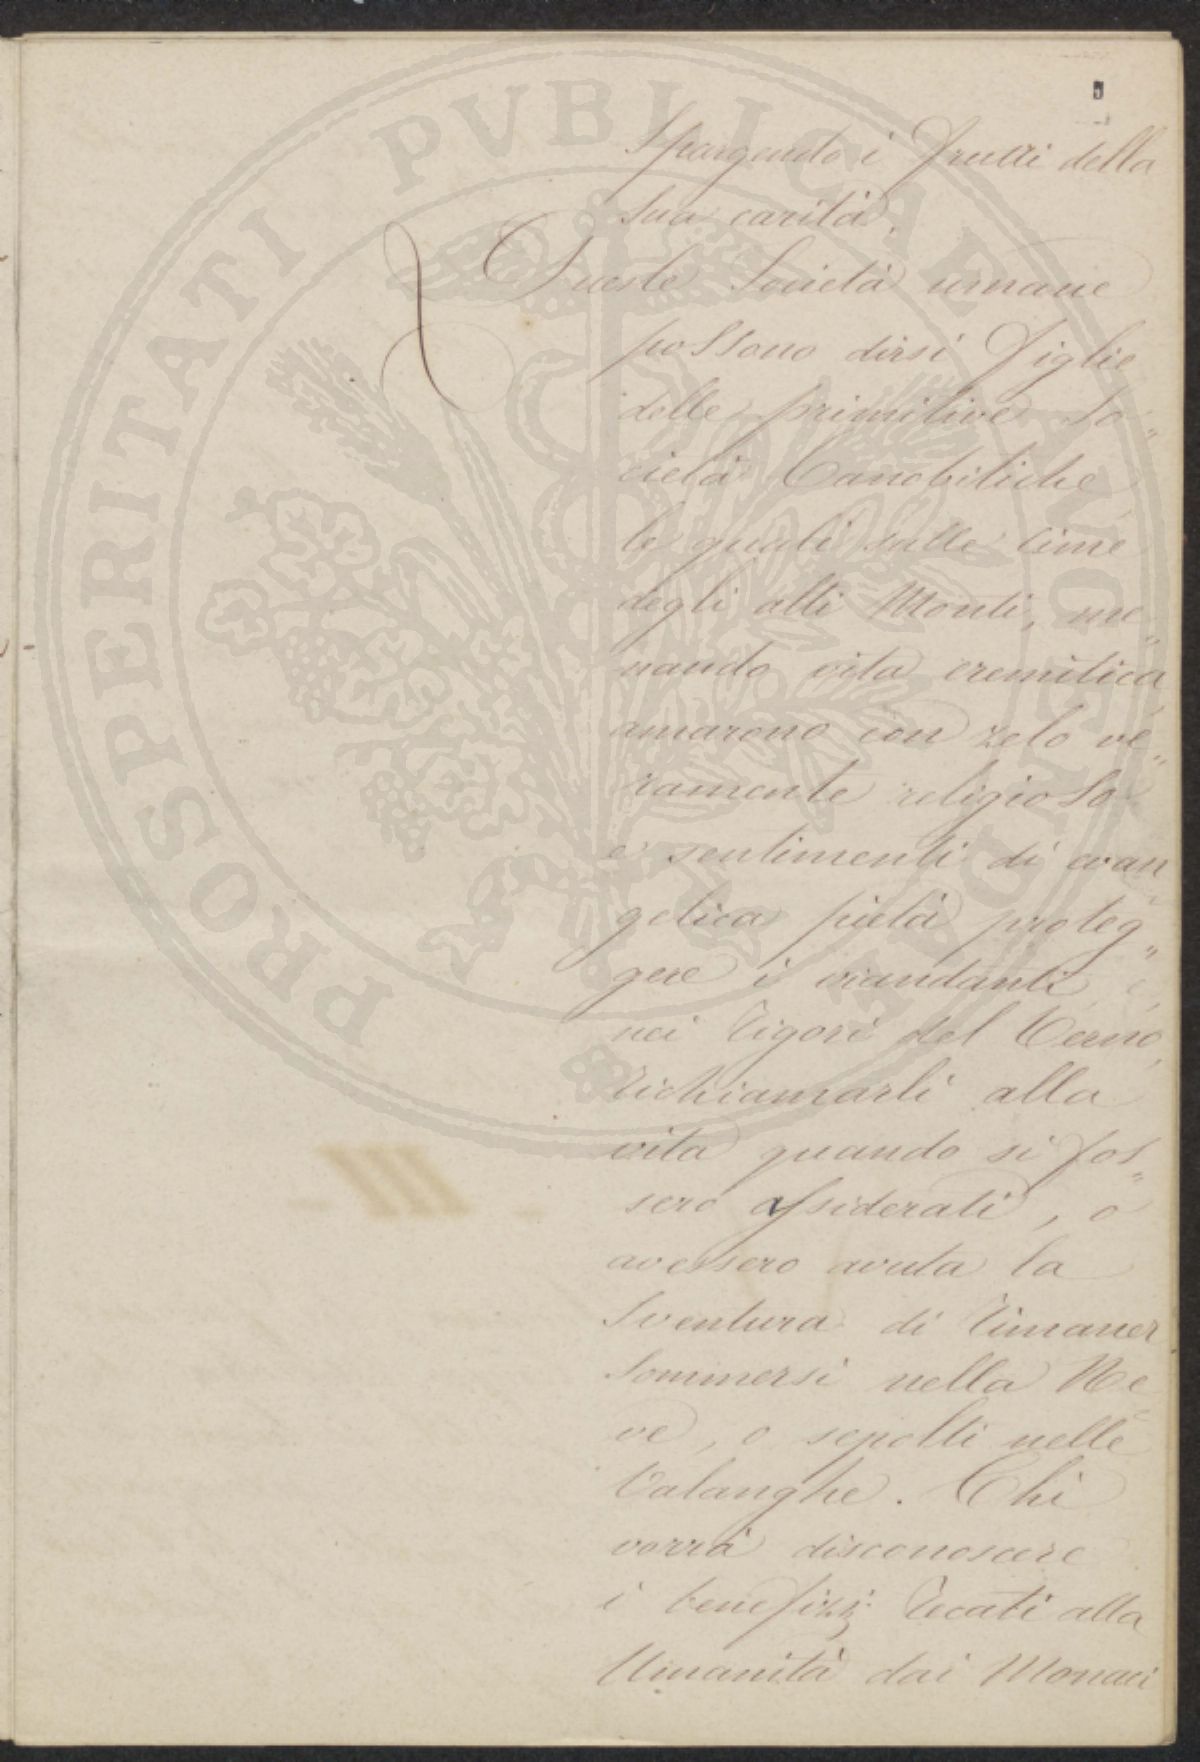 PROSPERITATI PVBLICAE AVGENDAE
Spargendo i frutti della
sua carità.
Queste Società umane
possono dirsi figlie
delle primitive So„
cietà Canobitiche
le quali sulle cime
degli alti Monti, me„
nando vita eremitica
amarono con zelo ve„
ramente religioso
e sentimenti di evan
gelica pietà proteg„
gere i viandanti e,
nei rigori del Verno,
richiamarli alla
vita quando si fos„
sero assiderati, o
avessero avuta la
sventura di rimaner
sommersi nella Ne
ve, o sepolti nelle
Valanghe. Chi
vorrà disconoscere
i benefizj recati alla
Umanità dai Monaci